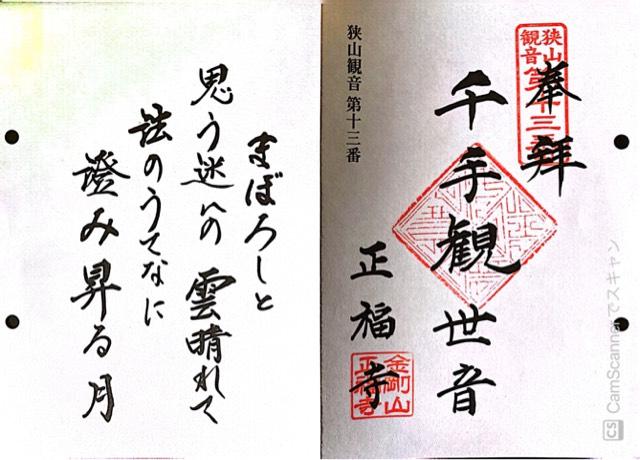 奉拝
狭山
観音
第十三番
千手観世音
正福寺
金剛山
正福寺
狭山観音 第十三番
まぼろしと
思う迷いの 雲晴れて
法のうてなに
澄み昇る月
CS CamScannerでスキャン